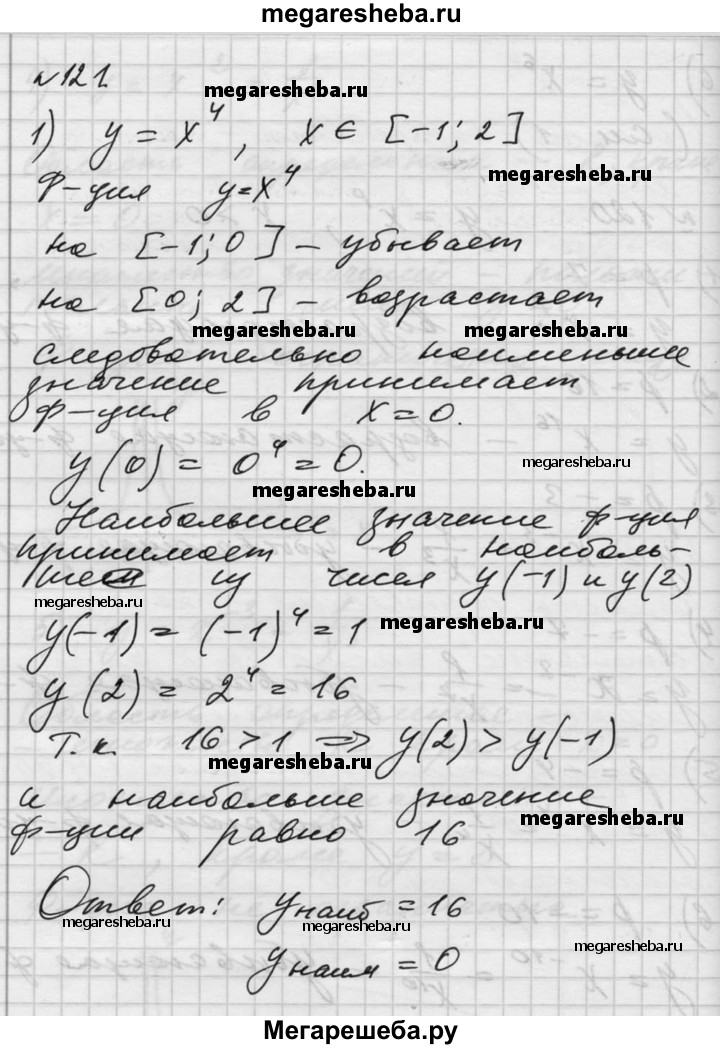 megaresheba.ru
№121.
megaresheba.ru
1) y = x⁴, x ∈ [-1; 2]
megaresheba.ru
Ф-ция y=x⁴
на [-1; 0] – убывает
на [0; 2] – возрастает
megaresheba.ru megaresheba.ru
следовательно наименьшее
значение принимает
ф-ция в x=0.
y(0) = 0⁴ = 0.
megaresheba.ru
megaresheba.ru
Наибольшее значение ф-ция
принимает в наиболь-
шем из чисел y(-1) и y(2)
megaresheba.ru
y(-1) = (-1)⁴ = 1
megaresheba.ru
y(2) = 2⁴ = 16
Т.к. 16 > 1 ⇒ y(2) > y(-1)
megaresheba.ru
и наибольше значение
megaresheba.ru
ф-ции равно 16
Ответ: yнаиб = 16
megaresheba.ru megaresheba.ru
yнаим = 0
megaresheba.ru
Мегарешеба.ру